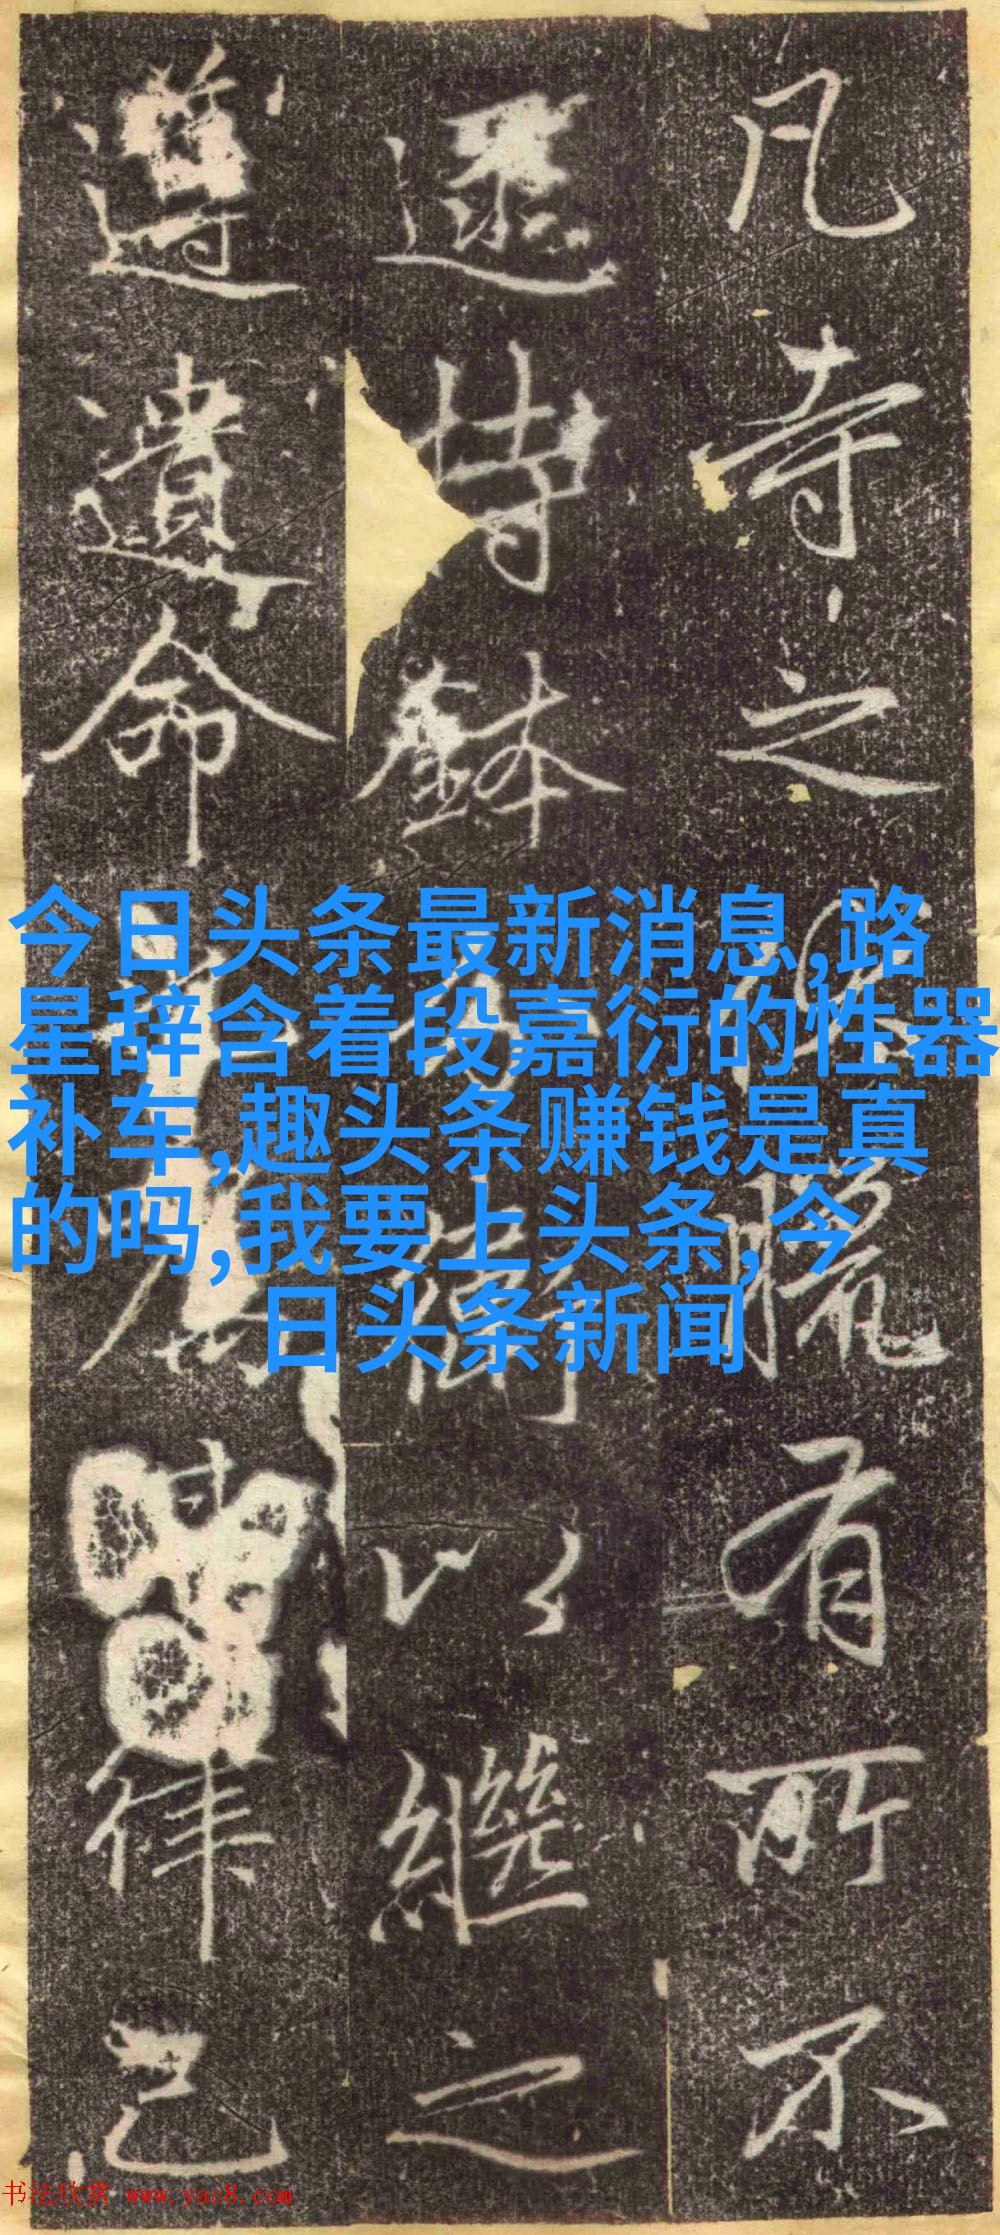 凡寺之臘有所不
持鉢以繼之
遵遺命律己
今日头条最新消息,路
星辞含着段嘉衍的性器
补车,趣头条赚钱是真
的吗,我要上头条,今
日头条新闻
书法欣赏 www.yac8.com